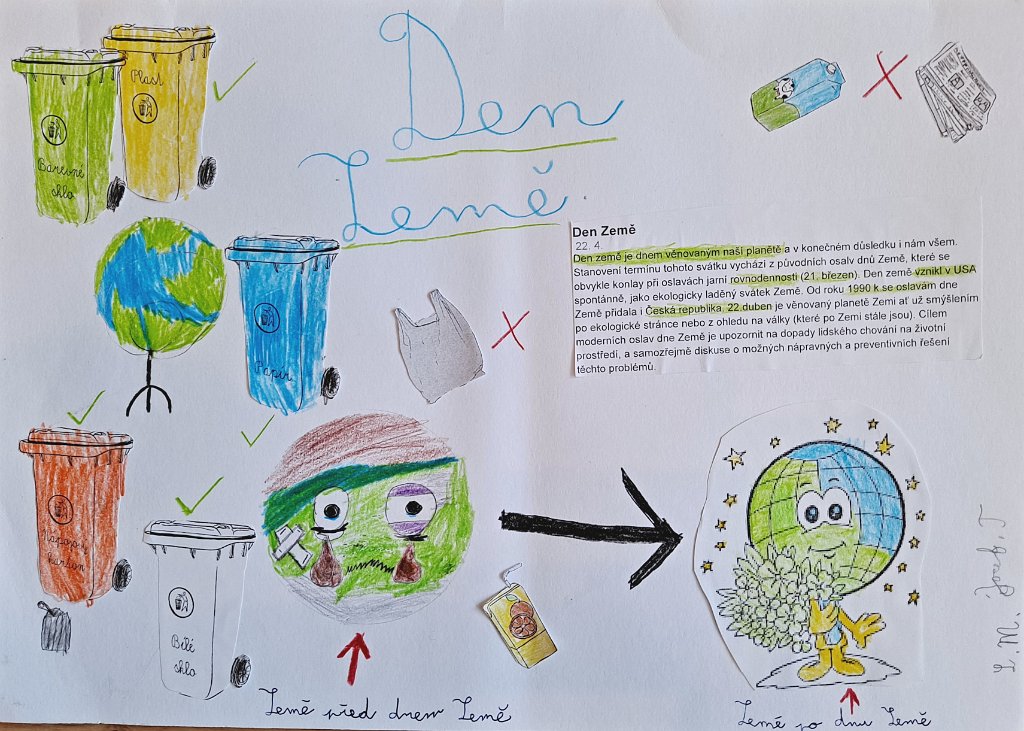 Den
Země
Plast
Barevné
sklo
Papír
Nápojový
karton
Bílé
sklo
Den Země
22. 4.
Den země je dnem věnovaným naší planětě a v konečném důsledku i nám všem.
Stanovení termínu tohoto svátku vychází z původních osalv dnů Země, které se
obvykle konlay při oslavách jarní rovnodennosti (21. březen). Den země vznikl v USA
spontánně, jako ekologicky laděný svátek Země. Od roku 1990 k se oslavám dne
Země přidala i Česká republika. 22.duben je věnovaný planetě Zemi ať už smýšlením
po ekologické stránce nebo z ohledu na války (které po Zemi stále jsou). Cílem
moderních oslav dne Země je upozornit na dopady lidského chování na životní
prostředí, a samozřejmě diskuse o možných nápravných a preventivních řešení
těchto problémů.
Země před dnem Země
Země po dnu Země